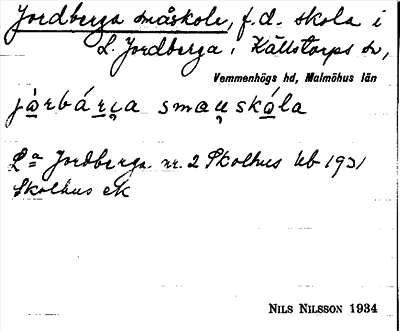 Jordberga småskole, f.d. skola i
L. Jordberga i Källstorps sn,
Vemmenhögs hd, Malmöhus län
jàrbár̯i̯a smau̯skóla
Lª Jordberga nr. 2 Skolhus Ub 1931
Skolhus ek
NILS NILSSON 1934